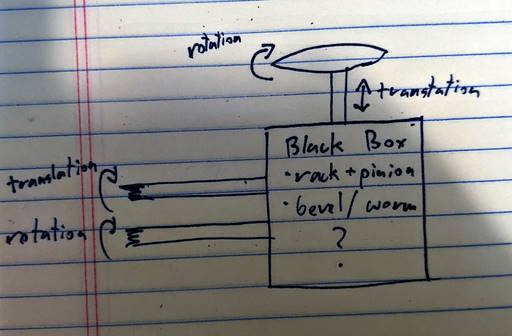 rotation
translation
Black Box
• rack + pinion
• bevel / worm
?
•
translation
rotation